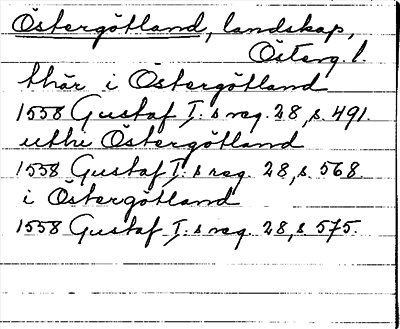 Östergötland, landskap,
Österg. l.
thär i Östergötland
1558 Gustaf I:s reg. 28, s. 491.
uthi Östergötland
1558 Gustaf I:s reg. 28, s. 568
i Östergötland
1558 Gustaf I:s reg. 28, s. 575.